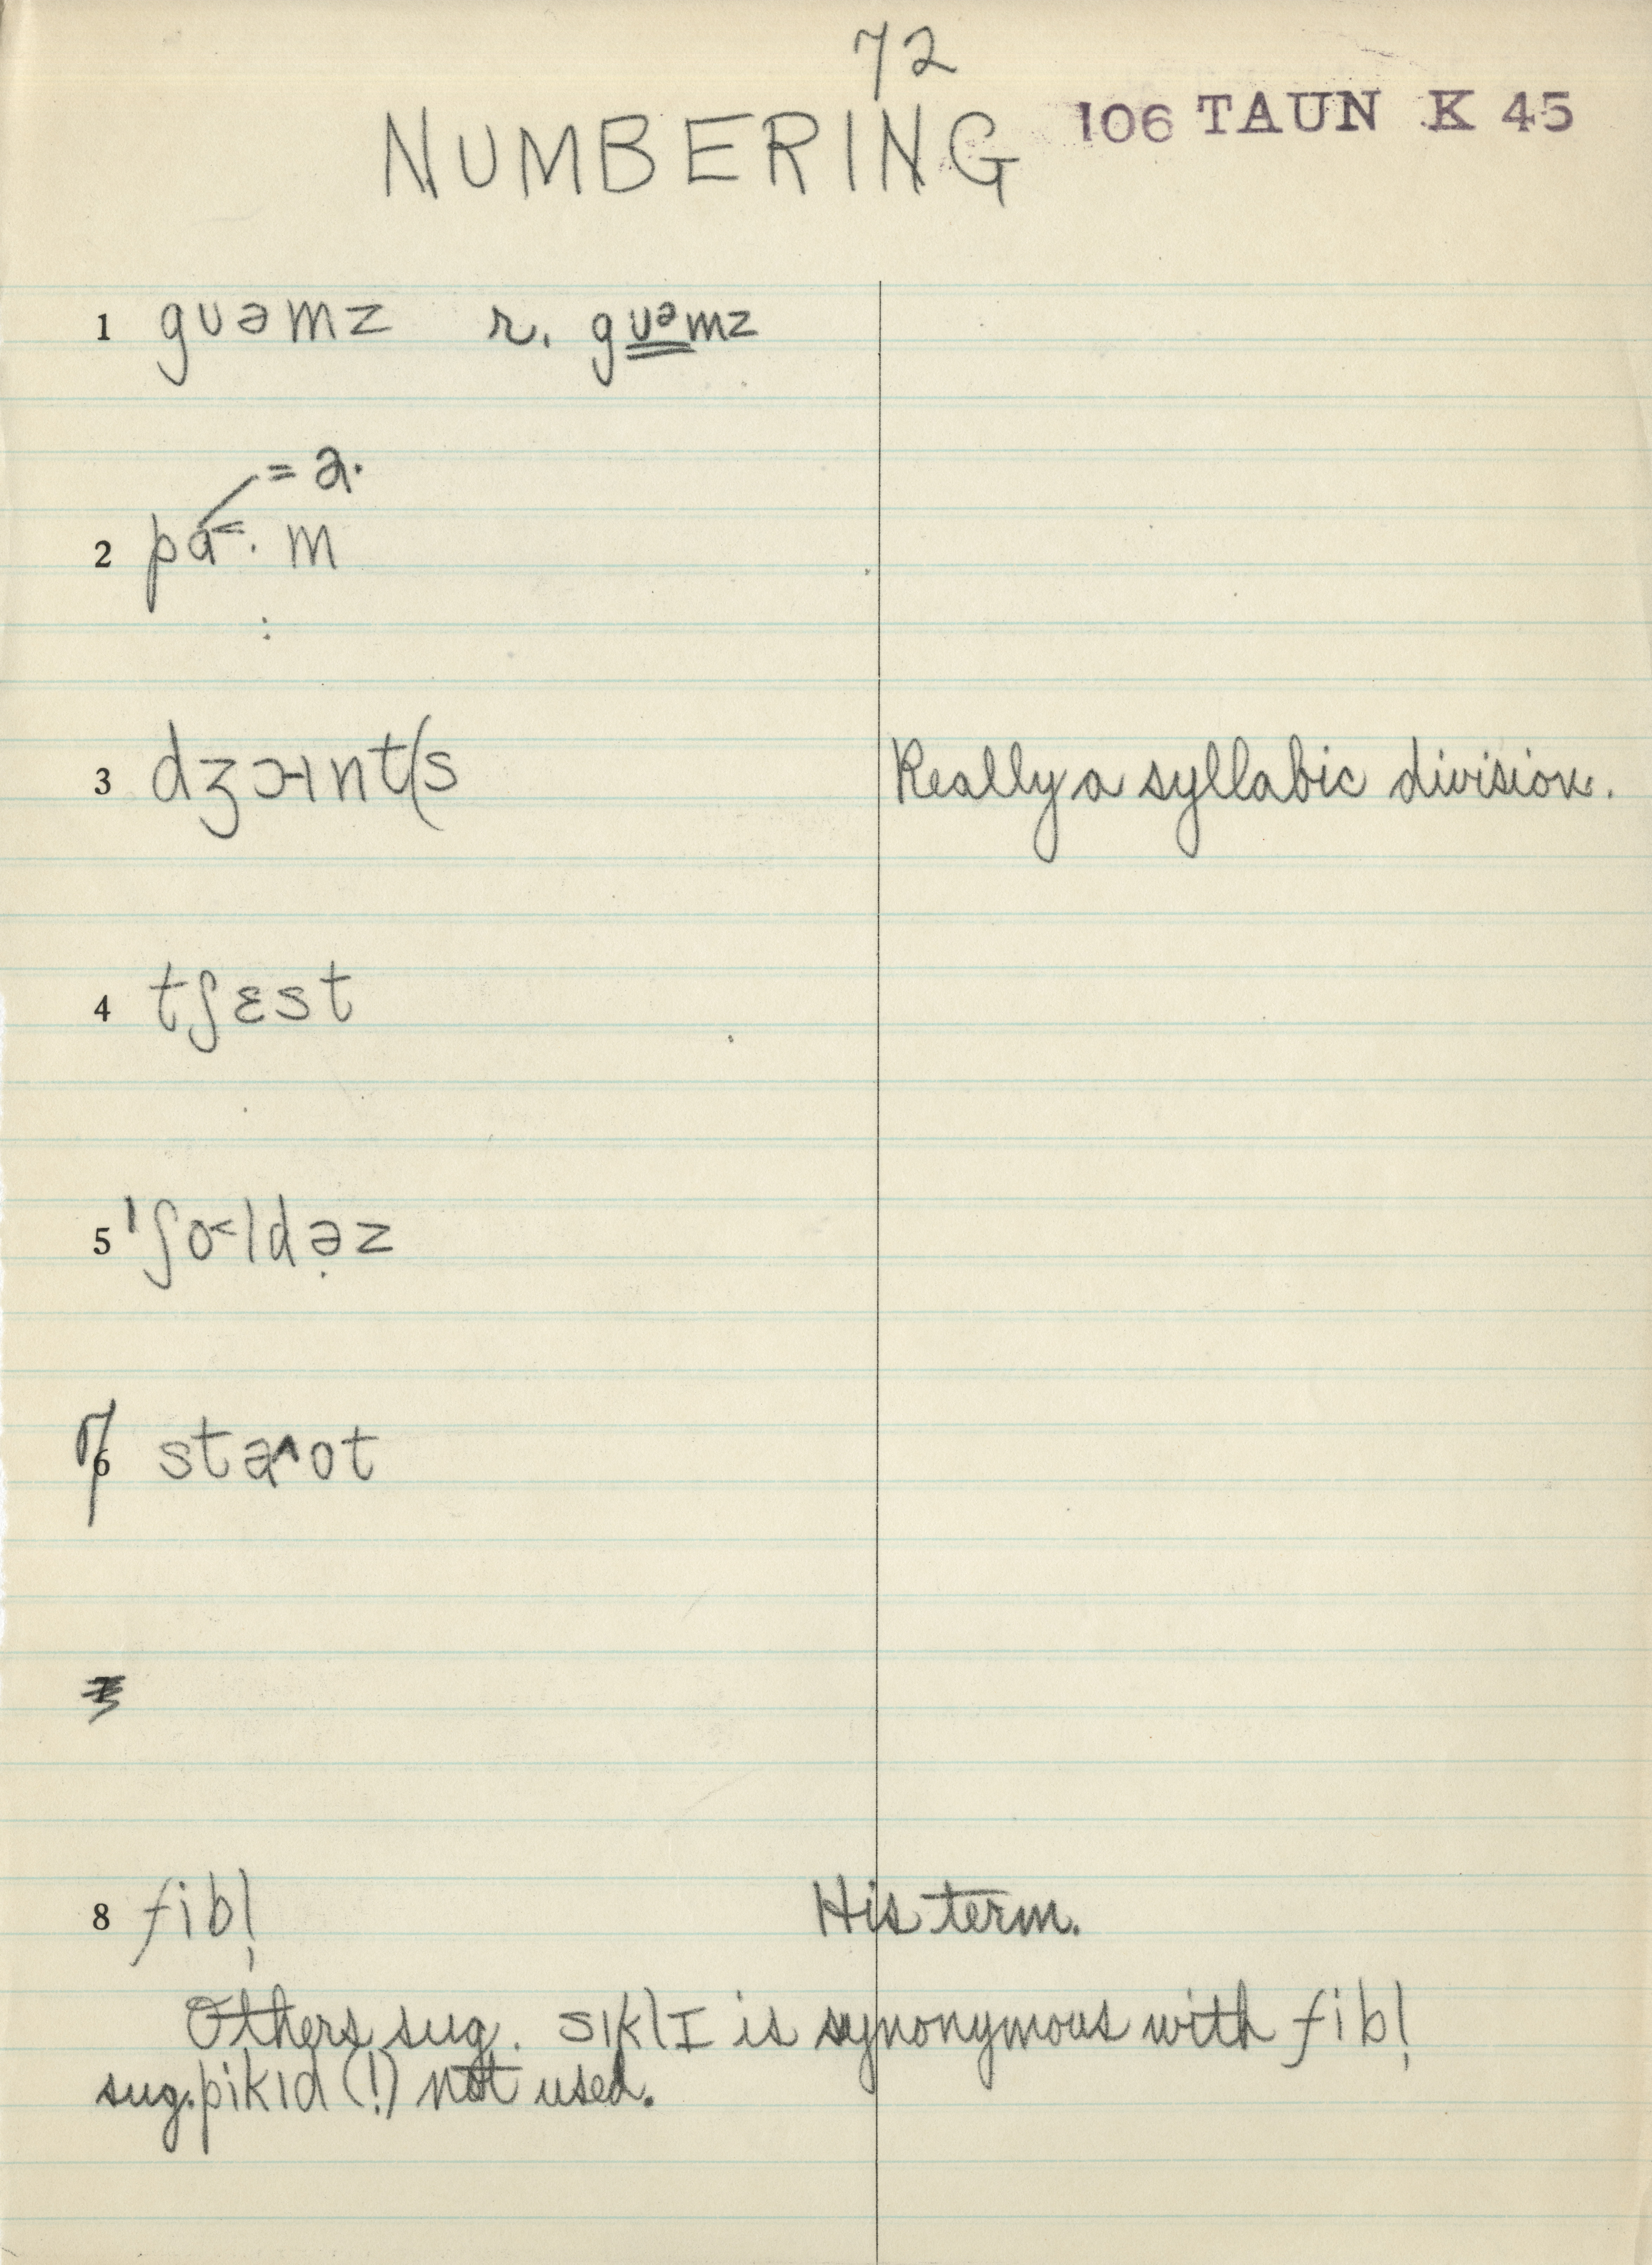 72
NUMBERING 106 TAUN K 45
1 guəmz r. guᵊmz
= a.
2 pa˂. m
:
3 dʒɔ˧ɪnt(s Really a syllabic division.
4 tʃɛst
5 'ʃo˂ldə̣z
7 6 sta^ot
8 fibl̩ His term.
Others sug. sɪklɪ is synonymous with fibl̩
sug. pikɪd (!) not used.